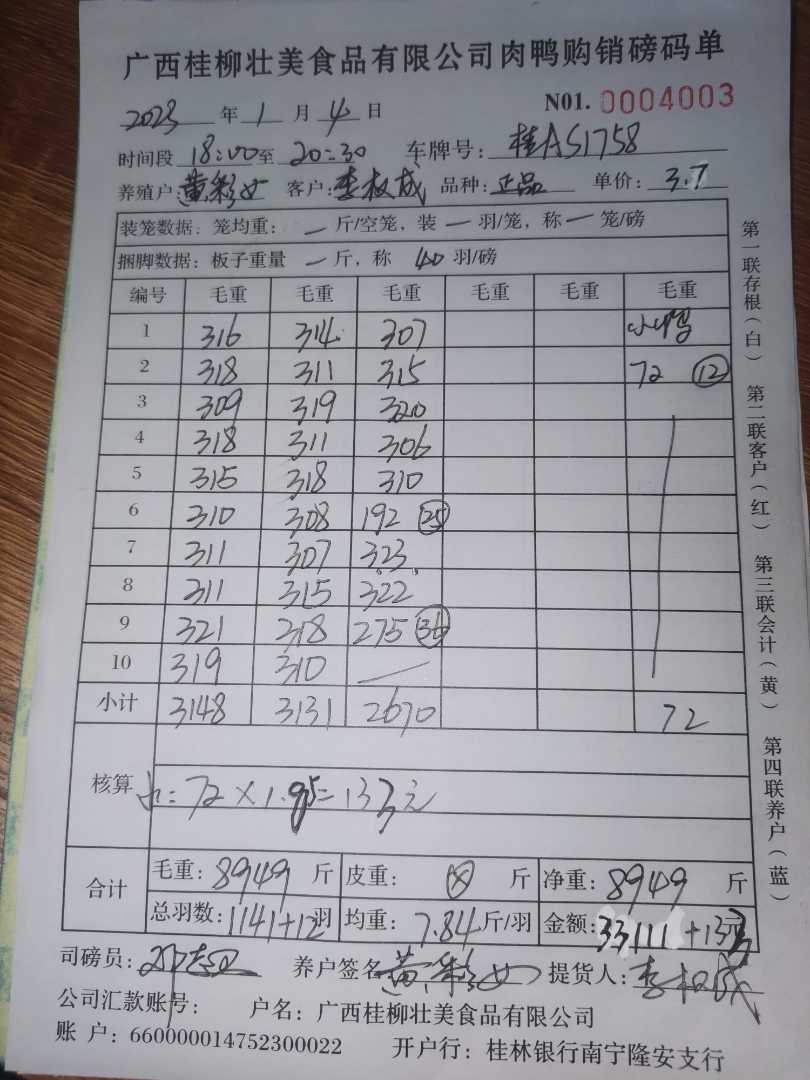 广西桂柳壮美食品有限公司肉鸭购销磅码单
2023 年 1 月 4 日 N01. 0004003
时间段 18:00 至 20:30 车牌号: 桂AS1758
养殖户: 黄彩女 客户: 李权成 品种: 正品 单价: 3.7
装笼数据: 笼均重: — 斤/空笼, 装 — 羽/笼, 称 — 笼/磅
捆脚数据: 板子重量 — 斤, 称 40 羽/磅
编号 毛重 毛重 毛重 毛重 毛重 毛重
1 316 314 307 小鸭
2 318 311 315 72 ⑫
3 309 319 320
4 318 311 306
5 315 318 310
6 310 308 192 ㉕
7 311 307 323
8 311 315 322
9 321 318 275 ㊱
10 319 310 —
小计 3148 3131 2670 72
核算 小: 72×1.85=133元
合计 毛重: 8949 斤 皮重: ⊗ 斤 净重: 8949 斤
总羽数: 1141+12 羽 均重: 7.84 斤/羽 金额: 33111+133元
司磅员: 养户签名 黄彩女 提货人: 李权成
公司汇款账号: 户名: 广西桂柳壮美食品有限公司
账 户: 660000014752300022 开户行: 桂林银行南宁隆安支行
第一联存根(白) 第二联客户(红) 第三联会计(黄) 第四联养户(蓝)